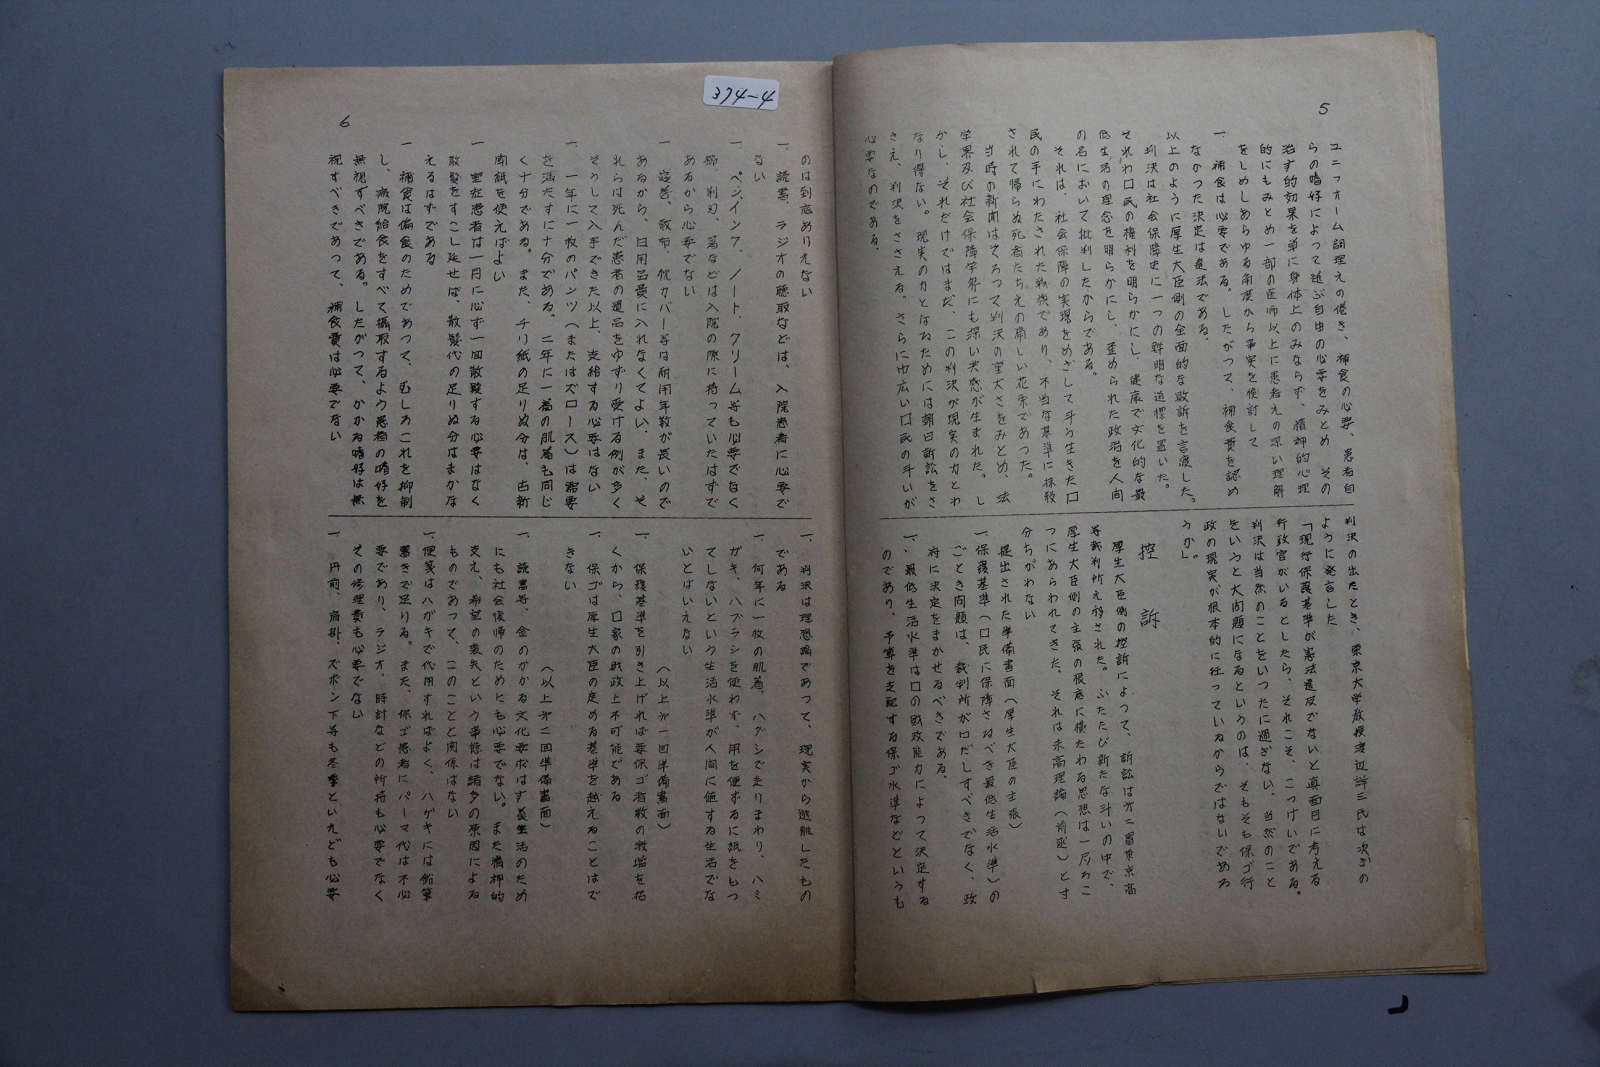 374-4
5
ユニフォーム調理えの倦き、補食の心要、患者自
らの嗜好によって選ぶ自由の心要をみとめ その
治す的効果を単に身体上のみならず、精神的心理
的にもみとめ一部の医師以上に患者えの深い理解
をしめしあらゆる角度から事実を検討して
一、補食は心要である。したがって、補食費を認め
なかった決定は違法である。
以上のように厚生大臣側の全面的な敗訴を言渡した。
判決は社会保障史に一つの鮮明な道標を置いた。
それわ口民の権利を明らかにし、健康で文化的な最
低生活の理念を明らかにし、歪められた政治を人向
の名において批判したからである。
それは、社会保障の実現をめざして斗う生きた口
民の手にわたされた武機であり、不当な基準に抹殺
されて帰らぬ死者たちえの新しい花束であった。
当時の新聞はそろって判決の重大さをみとめ、法
学界及び社会保障学界にも深い共感が生まれた。し
かし、それだけではまだ、この判決が現実の力とわ
なり得ない。現実の力となるためには朝日訴訟をさ
さえ、判決をささえる。さらに巾広い口民の斗いが
心要なのである。
判決の出たとき、東京大学教授渡辺洋三氏は次の
ように発言した
「現行保護基準が憲法違反でないと真面目に考える
行政官がいるとしたら、それこそ、こっけいである。
判決は当然のことをいったに過ぎない。当然のこと
をいうと大問題になるというのは、そもそも保ゴ行
政の現実が根本的に狂っているからではないであろ
うか」。
控訴
厚生大臣側の控訴によって、訴訟は第二審東京高
等裁判所え移された。ふたたび新たな斗いの中で、
厚生大臣側の主張の根底に横たわる思想は一層ろこ
つにあらわれてきた。それは未高理論(前近)とす
分ちがわない
提出された準備書面(厚生大臣の主張)
一、保護基準(口民に保障さるべき最低生活水準)の
ごとき問題は、裁判所が口だしすべきでなく、政
府に決定をまかせるべきである。
一、最低生活水準は口の財政能力によって決定する
のであり、予算を支配する保ゴ水準などというも
6
のは到底ありえない
一、読書、ラジオの聴取などは、入院患者に心要で
ない
一、ペン、インク、ノート、クリーム等も心要でなく
櫛、剃刃、箸などは入院の際に持っていたはずで
あるから心要でない
一、寝巻、敷布、枕カバー等は耐用年数が長いので
あるから、日用品費に入れなくてよい、また、そ
れらは死んだ患者の遺品をゆずり受ける例が多く
そうして入手できた以上、支給する心要はない
一、一年に一枚のパンツ(またはズロース)は需要
を満たすに十分である。二年に一着の肌着も同じ
く十分である。また、チリ紙の足りぬ分は、古新
聞紙を使えばよい
一、重症患者は一月に心ず一回散髪する心要はなく
散髪をすこし延せば、散髪代の足りぬ分はまかな
えるはずである
一、補食は偏食のためであって、むしろこれを抑制
し、病院給食をすべて摂取するよう患者の嗜好を
無視すべきである。したがって、かかる嗜好は無
視すべきであって、補食費は心要でない
一、判決は理想論であって、現実から遊離したもの
である
一、何年に一枚の肌着、ハダシで走りまわり、ハミ
ガキ、ハブラシを使わず、用を便ずるに紙をもっ
てしないという生活水準が人間に値する生活でな
いとはいえない
(以上第一回準備書面)
一、保護基準を引き上げれば要保ゴ者数の激増を招
くから、口家の財政上不可能である
一、保ゴは厚生大臣の定める基準を越えることはで
きない
(以上第二回準備書面)
一、読書等、金のかかる文化要求はず養生活のため
にも社会復帰のためにも心要でない。また精神的
支え、希望の喪失という事態は諸多の原因による
ものであって、このことと関係はない
一、便箋はハガキで代用すればよく、ハガキには鉛筆
書きで足りる。また、保ゴ患者にパーマ代は不心
要であり、ラジオ、時計などの所持も心要でなく
その修理費も心要でない
一、丹前、肩掛、ズボン下等も冬季といえども心要